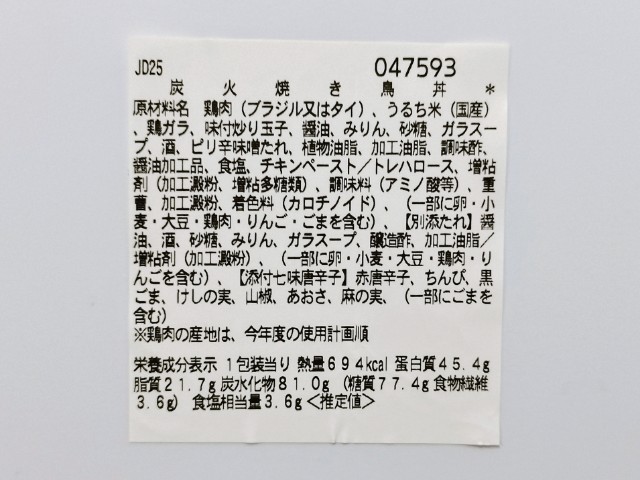 JD25 047593
炭火焼き鳥丼 *
原材料名 鶏肉（ブラジル又はタイ）、うるち米（国産）
、鶏ガラ、味付炒り玉子、醤油、みりん、砂糖、ガラスー
プ、酒、ピリ辛味噌たれ、植物油脂、加工油脂、調味酢、
醤油加工品、食塩、チキンペースト／トレハロース、増粘
剤（加工澱粉、増粘多糖類）、調味料（アミノ酸等）、重
曹、加工澱粉、着色料（カロチノイド）、（一部に卵・小
麦・大豆・鶏肉・りんご・ごまを含む）、【別添たれ】醤
油、酒、砂糖、みりん、ガラスープ、醸造酢、加工油脂／
増粘剤（加工澱粉）、（一部に卵・小麦・大豆・鶏肉・り
んごを含む）、【添付七味唐辛子】赤唐辛子、ちんぴ、黒
ごま、けしの実、山椒、あおさ、麻の実、（一部にごまを
含む）
※鶏肉の産地は、今年度の使用計画順
栄養成分表示 1包装当り 熱量694kcal 蛋白質45.4g
脂質21.7g 炭水化物81.0g （糖質77.4g 食物繊維
3.6g） 食塩相当量3.6g＜推定値＞